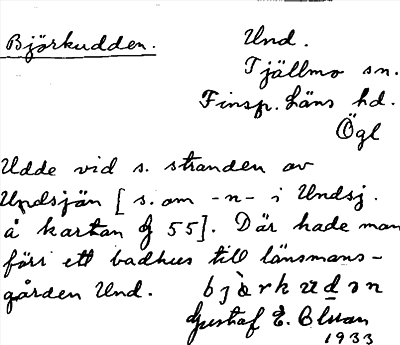 Björkudden.
Und.
Tjällmo sn.
Finsp. läns hd.
Ögl
Udde vid s. stranden av
Undsjön [s. om -n- i Undsj.
å kartan G 55]. Där hade man
förr ett badhus till länsmans-
gården Und. bjärkudən
Gustaf E. Olsson
1933